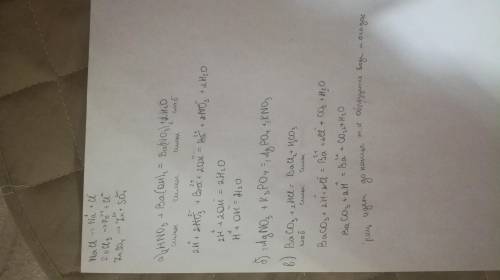 NaCl → Na⁺ + Cl⁻
ZnSO₄ → Zn²⁺ + SO₄²⁻
а) 2HNO₃ + Ba(OH)₂ = Ba(NO₃)₂ + 2H₂O
сильн сильн сильн слаб
2H⁺ + 2NO₃⁻ + Ba²⁺ + 2OH⁻ = Ba²⁺ + 2NO₃⁻ + 2H₂O
2H⁺ + 2OH⁻ = 2H₂O
H⁺ + OH⁻ = H₂O
б) AgNO₃ + K₃PO₄ = AgPO₄ KNO₃
в) BaCO₃ + 2HCl = BaCl₂ + H₂CO₃
слаб сильн сильн
BaCO₃ + 2H⁺ + 2Cl⁻ = Ba²⁺ + 2Cl⁻ + CO₂ + H₂O
BaCO₃ + 2H⁺ = Ba²⁺ + CO₂ + H₂O
реак идет до конца т.к образуется вода и осадок